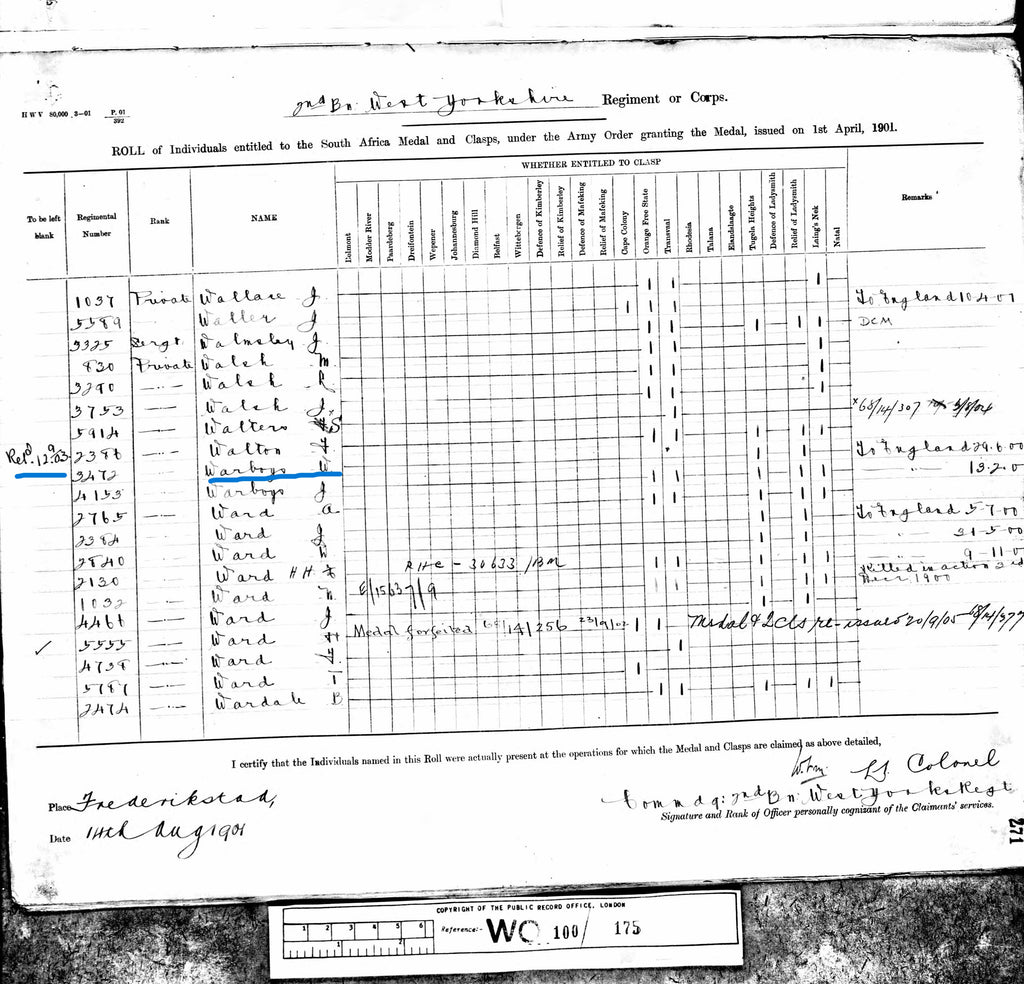 H W V 80,000 3-01 P. 01 / 392
2nd Bn West Yorkshire Regiment or Corps.
ROLL of Individuals entitled to the South Africa Medal and Clasps, under the Army Order granting the Medal, issued on 1st April, 1901.
WHETHER ENTITLED TO CLASP
To be left blank
Regimental Number
Rank
NAME
Belmont
Modder River
Paardeberg
Dreifontein
Wepener
Johannesburg
Diamond Hill
Belfast
Wittebergen
Defence of Kimberley
Relief of Kimberley
Defence of Mafeking
Relief of Mafeking
Cape Colony
Orange Free State
Transvaal
Rhodesia
Talana
Elandslaagte
Tugela Heights
Defence of Ladysmith
Relief of Ladysmith
Laing's Nek
Natal
Remarks
1037 Private Wallace J. To England 10.4.01
5589 Waller J DCM
3325 Sergt Walmsley J.
830 Private Walsh M.
3290 Walsh R
3753 Walsh J. 68/14/307
5914 Walters S
2386 Walton To England 29.6.00
3472 Warboys W 13.2.0
4153 Warboys J
2765 Ward A To England 5-7.00
2384 Ward J 31-5.00
2840 Ward W 9-11.0
2130 Ward H H RHC - 30633/BM Killed in action
1032 Ward E/15637/9 1900
4466 Ward J
✓ 5555 Ward H Medal forfeited 68/14/256 23/9/02 Medal & 2 cls re-issued 20/9/05
4738 Ward
5787 Ward
2474 Wardale B
I certify that the Individuals named in this Roll were actually present at the operations for which the Medal and Clasps are claimed as above detailed,
Lt. Colonel
Place Frederikstad,
Commdg: 2nd Bn: West Yorks Regt
Date 14th Aug 1901
Signature and Rank of Officer personally cognizant of the Claimants' services.
271
COPYRIGHT OF THE PUBLIC RECORD OFFICE, LONDON
1 2 3 4 5 6
Reference:- WO 100/ 175
1 2